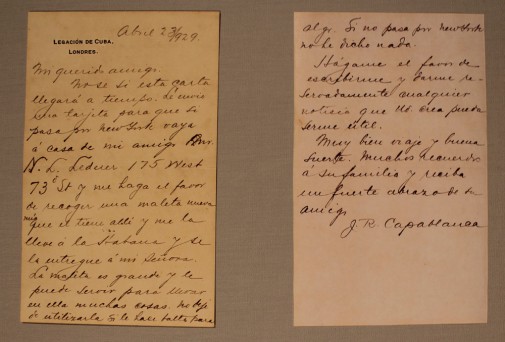 LEGACIÓN DE CUBA,
LONDRES.
Abril 23/929.
Mi querido amigo.
No se si esta carta
llegará a tiempo. Le envio
una tarjeta para que si
pasa por new York vaya
á casa de mi amigo Mr.
N. L. Lederer 175 West
73d St y me haga el favor
de recoger una maleta nueva
mia que el tiene alli y me la
lleve á la Habana y se
la entregue á mi Señora.
La maleta es grande y le
puede servir para llevar
en ella muchas cosas. no deje
de utilizarla si le hace falta para
algo. Si no pasa por new York
no he dicho nada.
Hágame el favor de
escribirme y darme re-
servadamente cualquier
noticia que Ud. crea pueda
serme util.
Muy buen viaje y buena
suerte. Muchos recuerdos
á su familia y reciba
un fuerte abrazo de su
amigo
J. R. Capablanca